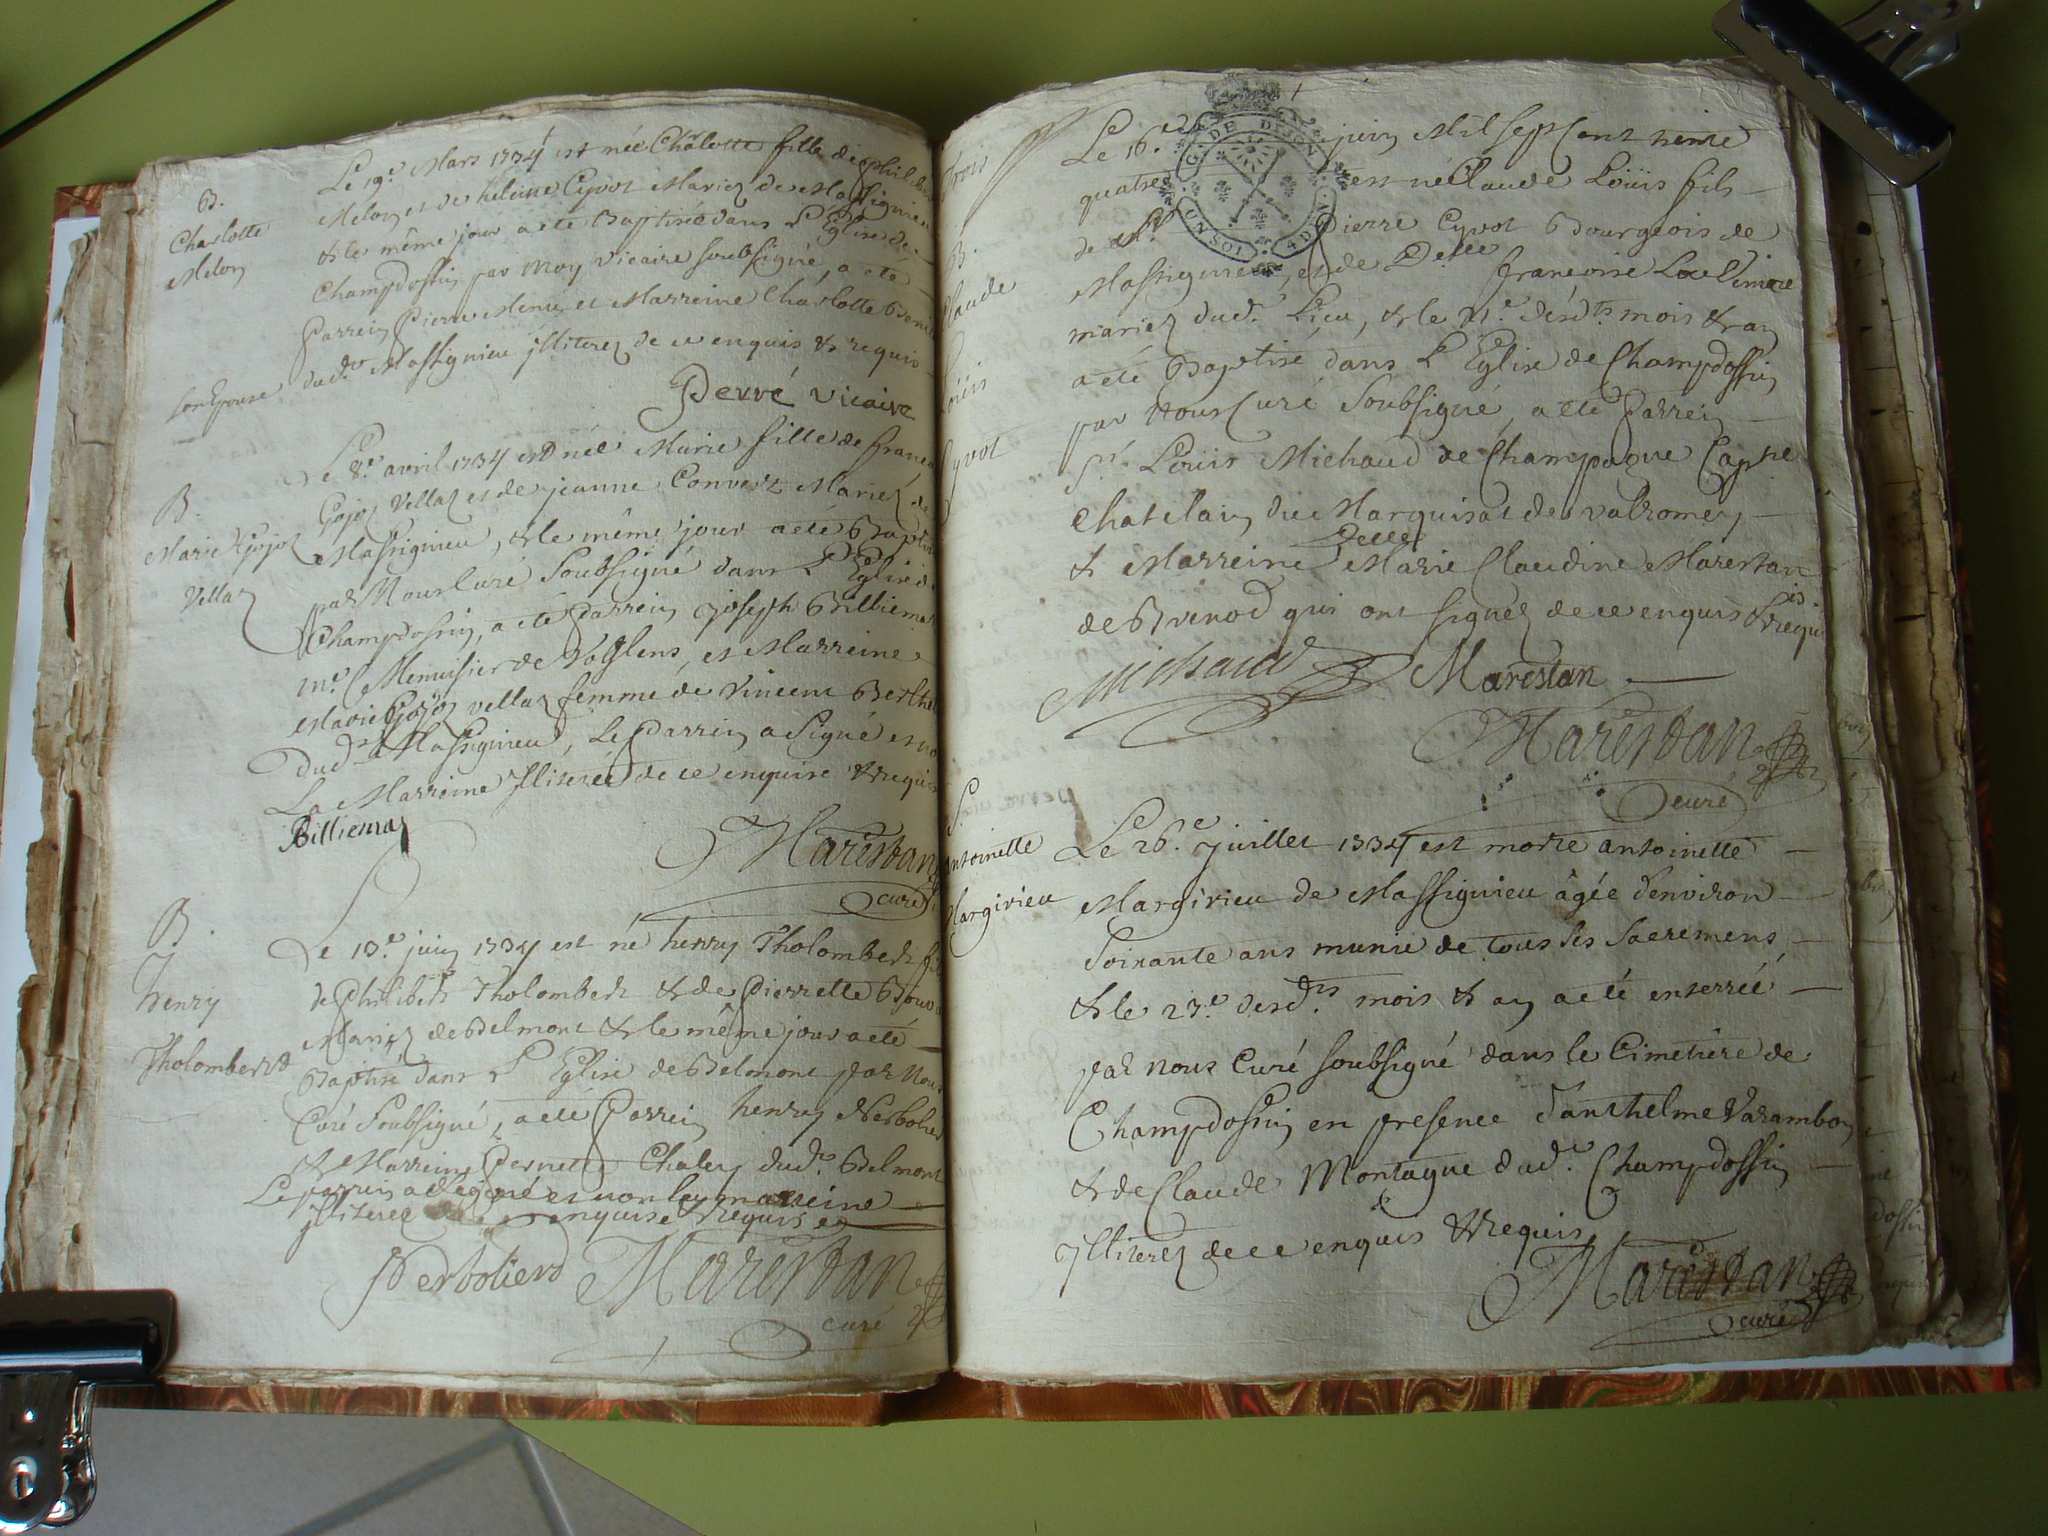 B.
Charlotte
Melon
son Epouse
Le 19.e Mars 1734 est née Charlotte fille de
Melon et de heleine Cyvot Mariez de Massignieu
& le même jour a eté Baptisée dans L'Eglise de
Champdossin par Moy Vicaire soubsigné, a eté
Parrein Pierre et Marreine Charlotte
dud.t Massignieu jlliterez de ce enquis & requis
Dervé Vicaire
B.
Marie Gojoz
Vellaz
Le 8.e avril 1734 est née Marie fille de
Gojoz Vellaz et de jeanne Convert Mariez de
Massignieu, & le même jour a eté
par Nous Curé Soubsigné dans L'Eglise de
Champdossin, a eté Parrein joseph Billiemaz
m.e Menuisier de Voglens, et Marreine
Marie Gojoz vellaz femme de Vincent
Dud.t Massignieu, Le Parrein a Signé et no
La Marreine jlliterée de ce enquise & requi
Billiemaz
Marestan
curé
B.
Henry
Tholomberd
Le 13.e juin 1734 est né henry Tholombert fil
de Philibert Tholombert & de Pierrette
Mariez de Belmont & le même jour a eté
Baptisé dans L'Eglise de Belmont par Nous
Curé Soubsigné, a eté Parrein henry
& Marreine Pernette Chaley dud.t Belmont
Le parrein a signé et non la marreine
jlliterée de ce enquise & requise
Marestan
curé
trois
B.
Claude
Loüis
Cyvot
G. DE DIJON
UN SOL 4 D.
Le 16.e juin Mil sept Cent trente
quatre est né Claude Loüis fils
de Sr Pierre Cyvot Bourgeois de
Massignieu, et de Delle francoise
mariez dud.t Lieu, & le 21.e desd.ts mois & an
a eté Baptisé dans L'Eglise de Champdossin
par Nous Curé Soubsigné, a eté Parrein
Sr. Loüis Michaud de Champagne Capne
Chatelain du Marquisat de valromey
& Marreine Delle Marie Claudine Marestan
de Brenod qui ont signéz de ce enquis & requis
Michaud Marestan
Marestan
curé
S.
Antoinette
Margirieu
Le 26.e juillet 1734 est morte antoinette
Margirieu de Massignieu âgée d'environ
Soixante ans munie de tous ses Sacremens,
& le 27.e desd.ts mois & an a eté enterrée
par nous Curé soubsigné dans le Cimetiere de
Champdossin en presence d'anthelme Varambon
& de Claude Montagne dud.t Champdossin
jlliterez de ce enquis & requis
Marestan
curé